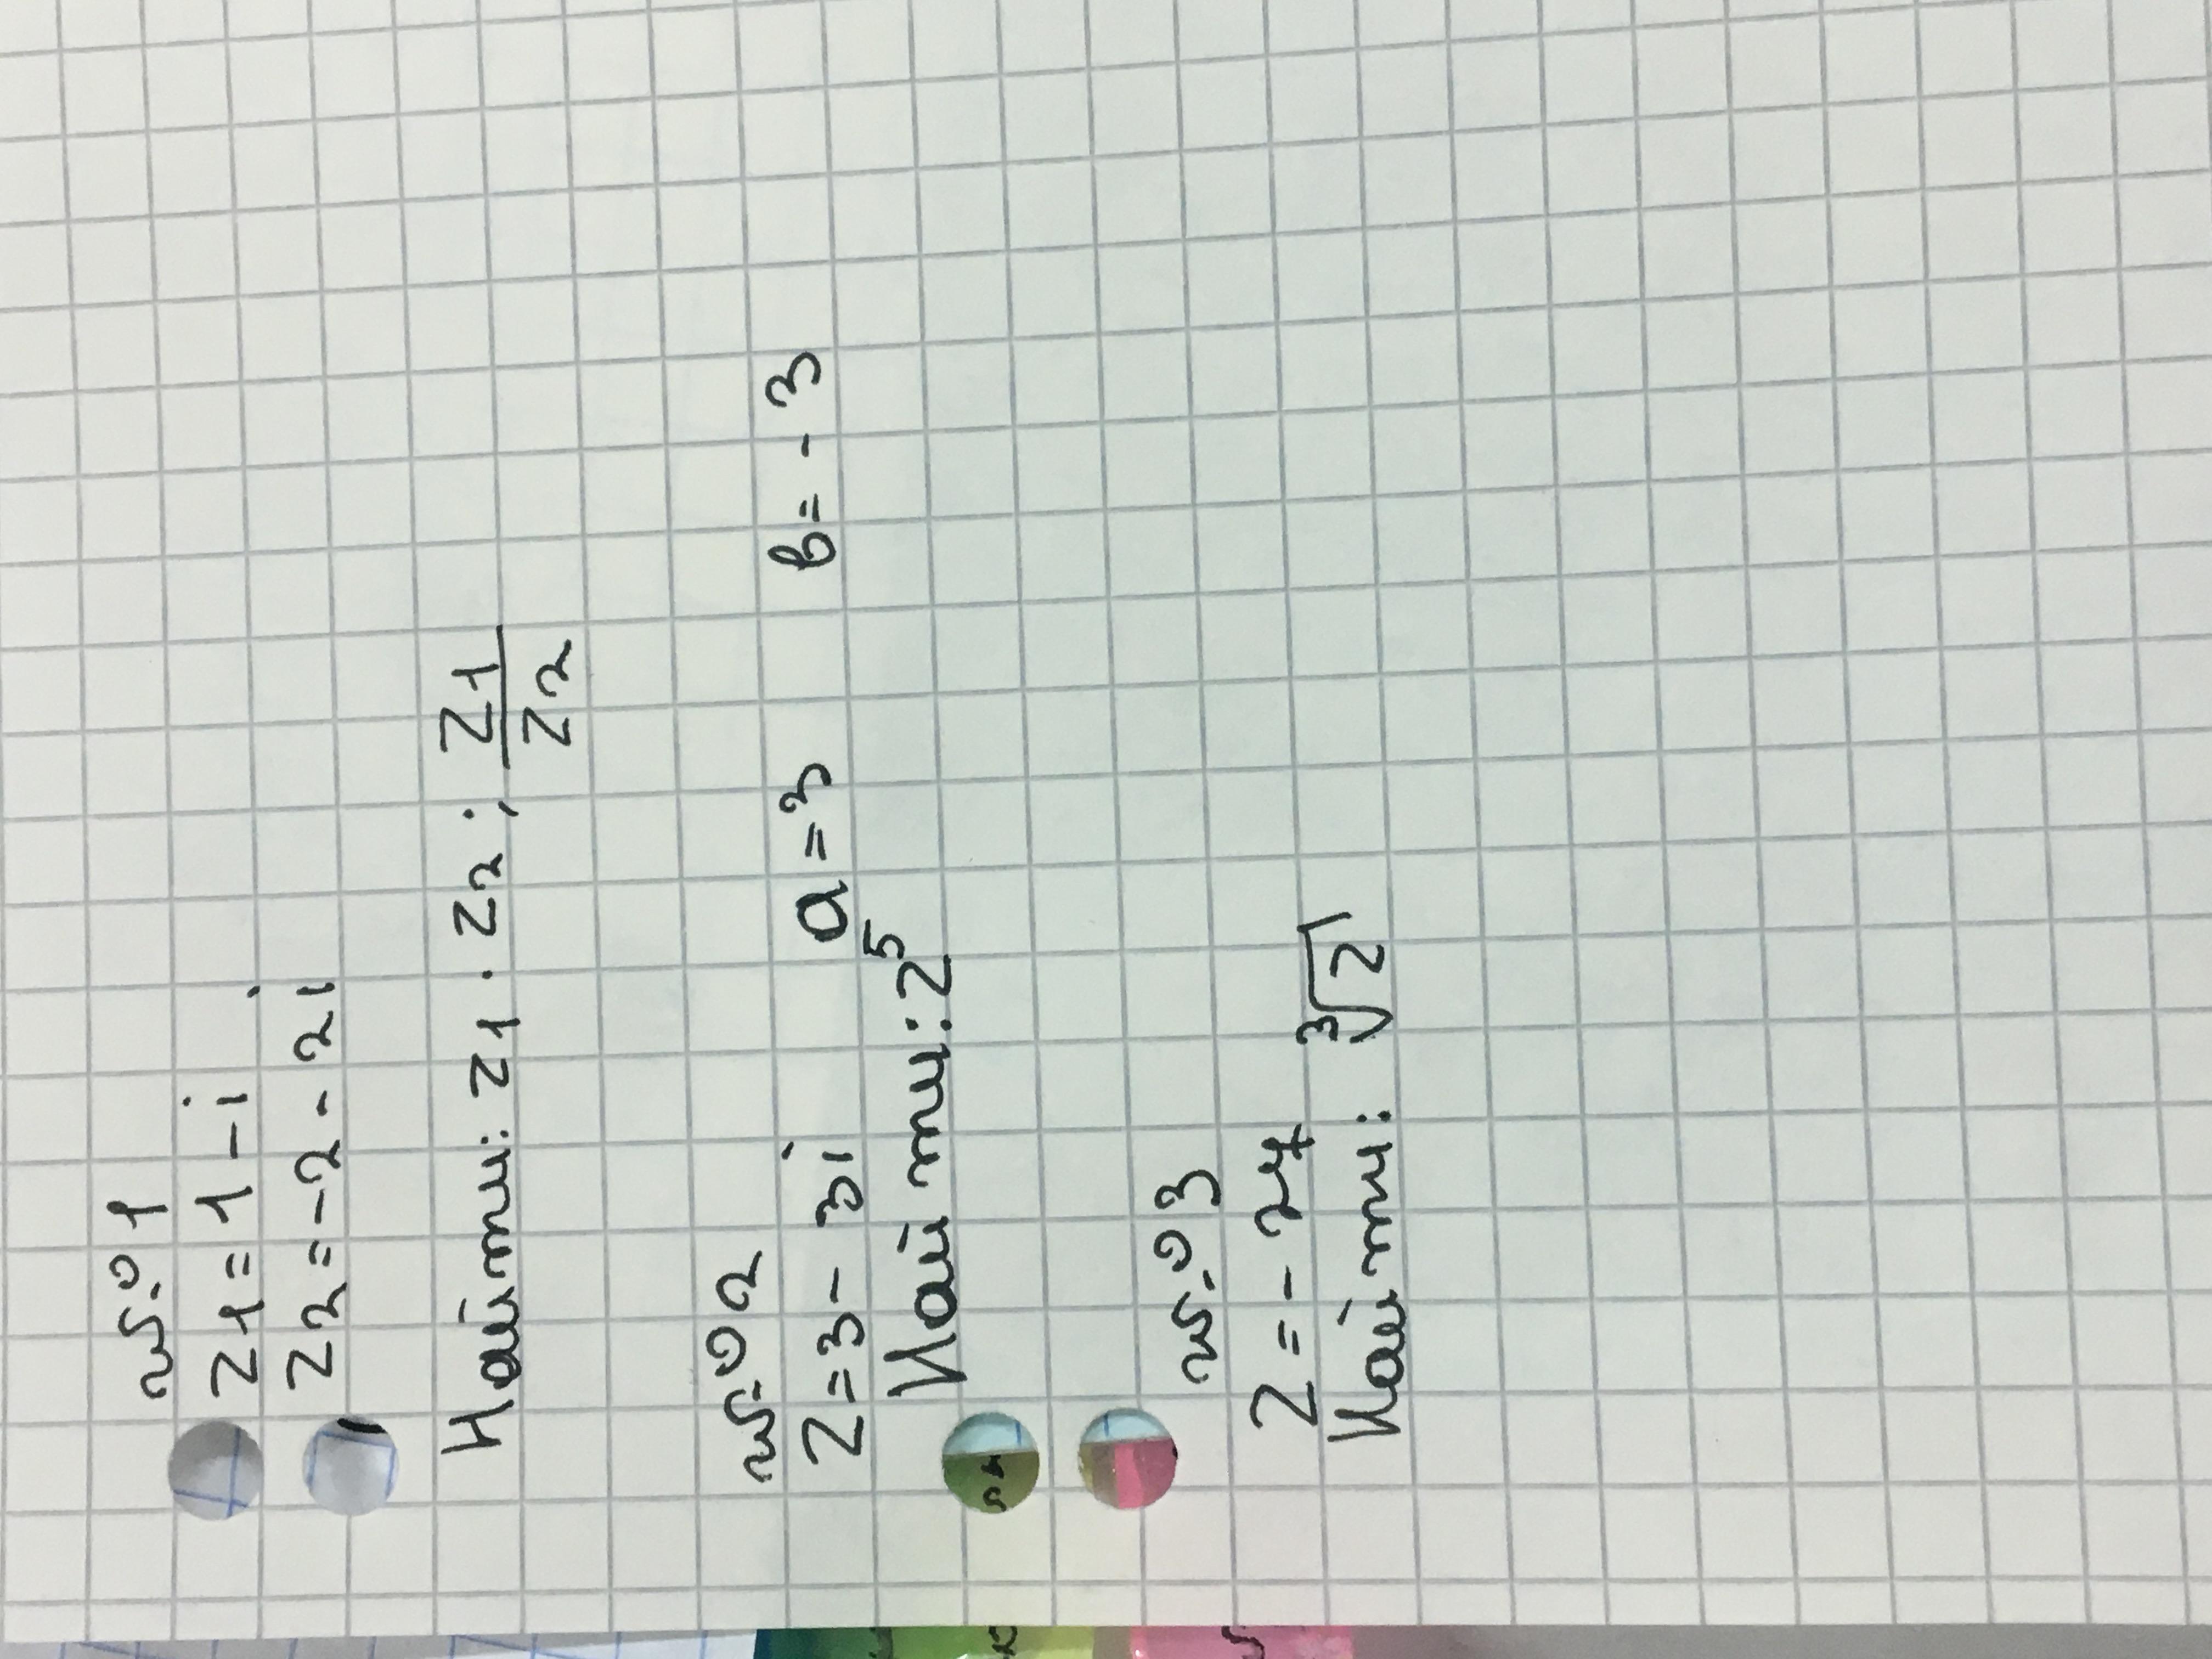 №1
z1 = 1 - i
z2 = -2 - 2i
Найти: z1 · z2; z1/z2
№2
z = 3 - 3i a = 3 b = - 3
Найти: z⁵
№3
z = - 27
Найти: ³√z